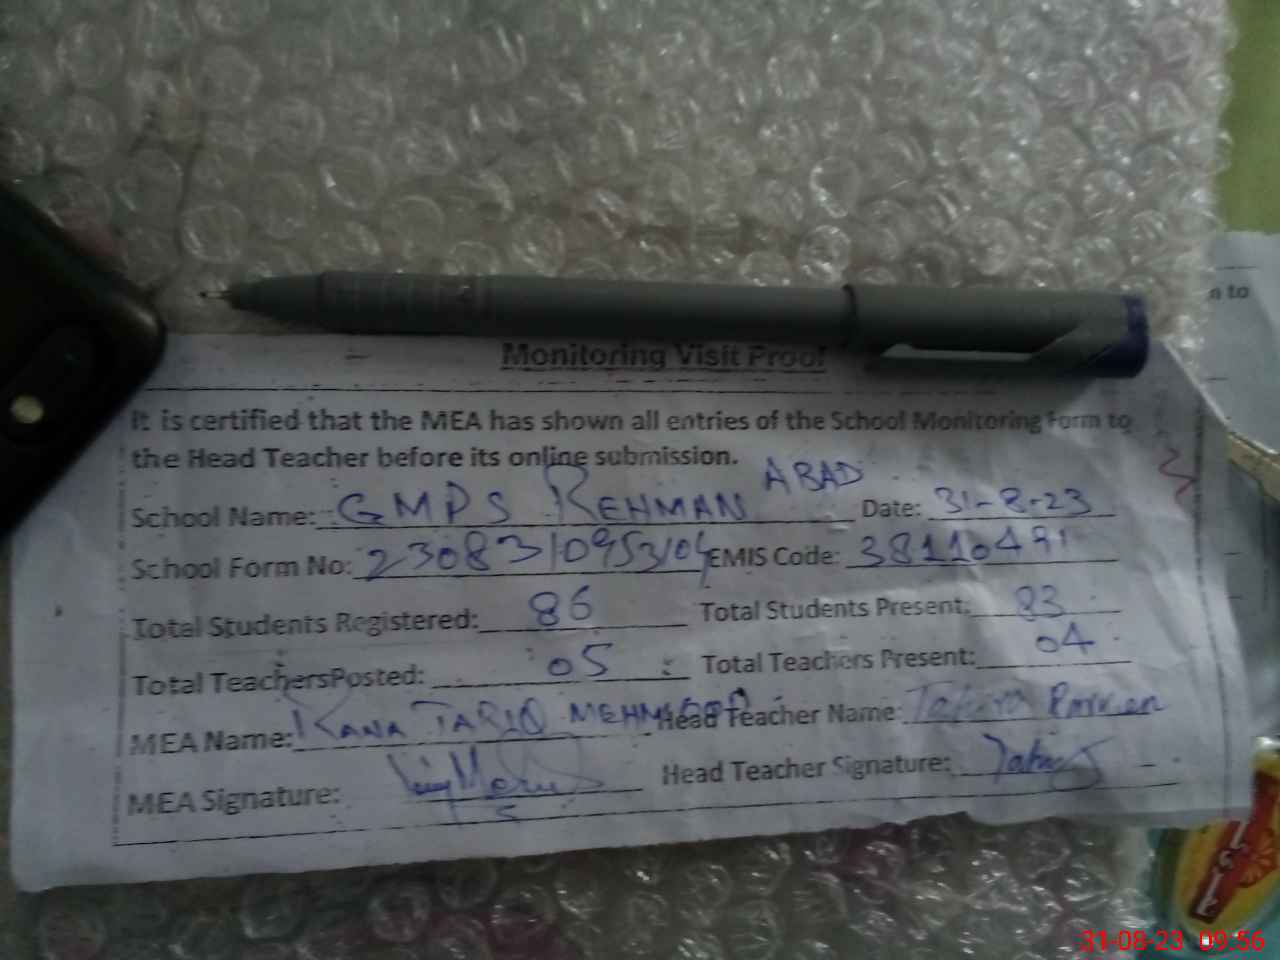 Monitoring Visit Proof
It is certified that the MEA has shown all entries of the School Monitoring Form to
the Head Teacher before its online submission.
School Name: GMPS REHMAN ABAD Date: 31-8-23
School Form No: EMIS Code: 38110491
Total Students Registered: 86 Total Students Present: 83
Total TeachersPosted: 05 Total Teachers Present: 04
MEA Name: RANA TARIQ MEHMOOD Head Teacher Name: Tahira Parveen
MEA Signature: Head Teacher Signature:
n to
31-08-23 09:56